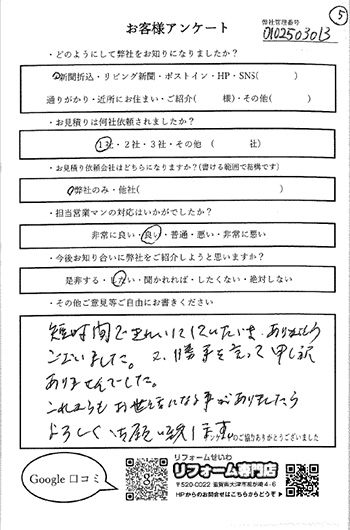 ⑤
お客様アンケート
弊社管理番号
0102503013
・どのようにして弊社をお知りになりましたか?
新聞折込・リビング新聞・ポストイン・HP・SNS( )
通りがかり・近所にお住まい・ご紹介( 様)・その他( )
・お見積りは何社依頼されましたか?
1社・2社・3社・その他 ( 社)
・お見積り依頼会社はどちらになりますか?(書ける範囲で結構です)
弊社のみ・他社( )
・担当営業マンの対応はいかがでしたか?
非常に良い・良い・普通・悪い・非常に悪い
・今後お知り合いに弊社をご紹介しようと思いますか?
是非する・したい・聞かれれば・したくない・絶対しない
・その他ご意見等ご自由にお書きください
短時間できれいにしていただき、ありがとう
ございました。又、勝手を言って申し訳
ありませんでした。
これからもお世話になる事がありましたら
よろしくお願い致します。
アンケートのご協力ありがとうございました
Google 口コミ
リフォームせいわ
リフォーム専門店
〒520-0022 滋賀県大津市柳が崎4-6
HPからのお問合せはこちらからどうぞ▶